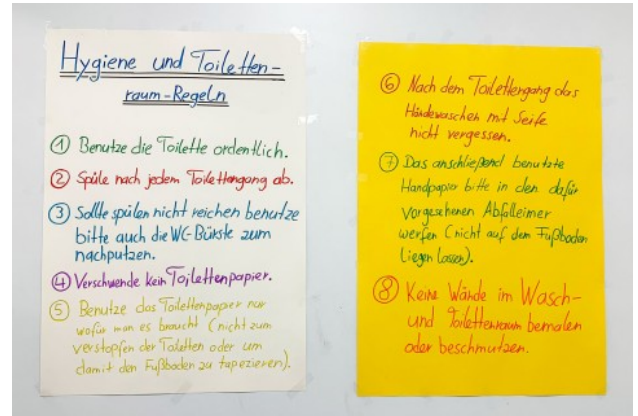 Hygiene und Toiletten-
raum-Regeln
① Benutze die Toilette ordentlich.
② Spüle nach jedem Toilettengang ab.
③ Sollte spülen nicht reichen benutze
bitte auch die WC-Bürste zum
nachputzen.
④ Verschwende kein Toilettenpapier.
⑤ Benutze das Toilettenpapier nur
wofür man es braucht (nicht zum
verstopfen der Toiletten oder um
damit den Fußboden zu tapezieren).
⑥ Nach dem Toilettengang das
Händewaschen mit Seife
nicht vergessen.
⑦ Das anschließend benutzte
Handpapier bitte in den dafür
vorgesehenen Abfalleimer
werfen (nicht auf dem Fußboden
liegen lassen).
⑧ Keine Wände im Wasch-
und Toilettenraum bemalen
oder beschmutzen.